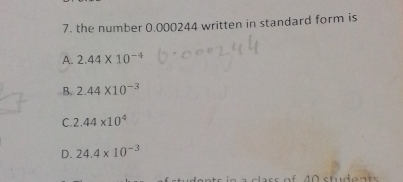 7. the number 0.000244 written in standard form is
A. 2.44 X 10⁻⁴ 0.000244
B. 2.44 X10⁻³
C.2.44 x10⁴
D. 24.4 x 10⁻³
of students in a class of 40 students